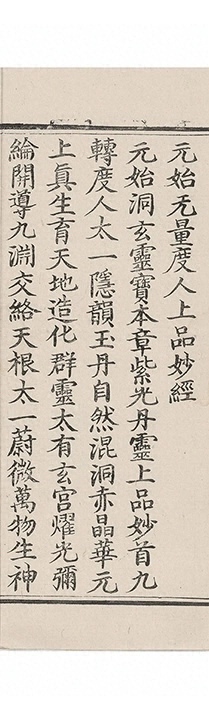 元始无量度人上品妙經
元始洞玄靈寶本章紫光丹靈上品妙首九
轉度人太一隱韻玉丹自然混洞赤晶華元
上眞生育天地造化群靈太有玄宫耀光彌
綸開導九淵交絡天根太一蔚微萬物生神